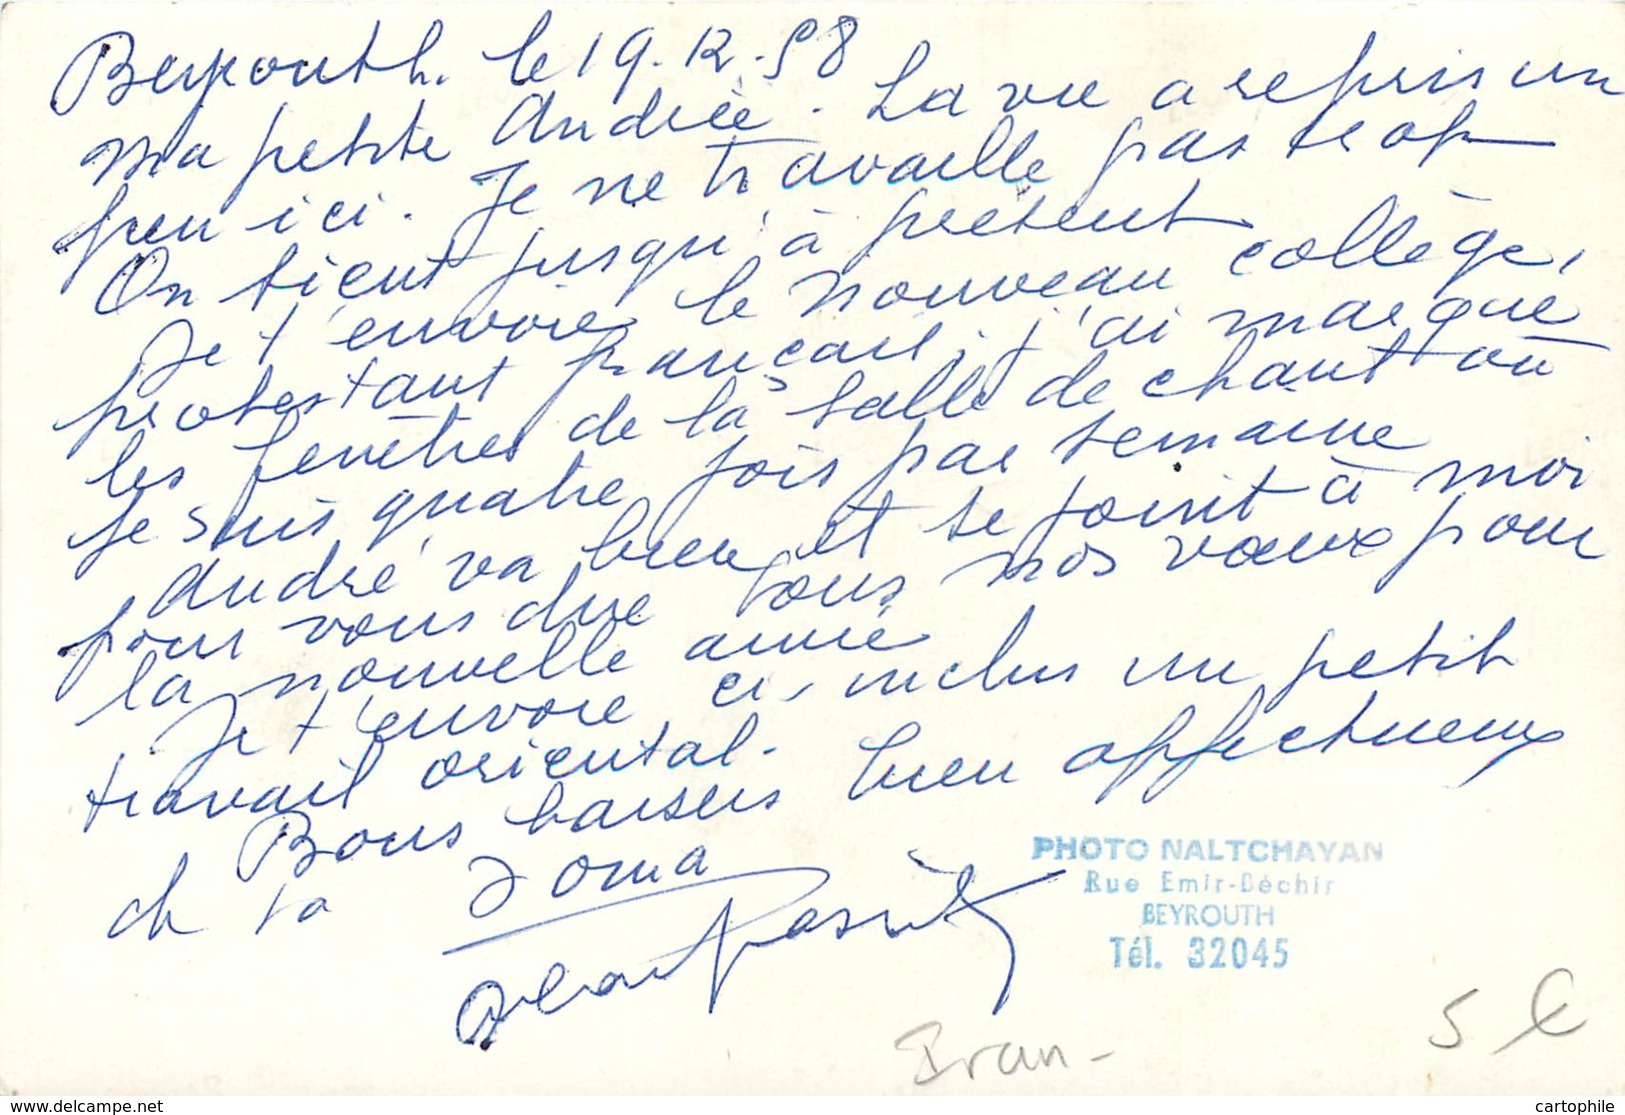 Beyrouth. le 19.12.58
Ma petite Andrée. La vie a repris un
peu ici. Je ne travaille pas trop
On tient jusqu'à présent
Je t'envoie le nouveau collège,
protestant français, j'ai marqué
les fenêtres de la salle de chant où
je suis quatre fois par semaine
André va bien et se joint à moi
pour vous dire tous nos vœux pour
la nouvelle année
Je t'envoie ci-inclus un petit
travail oriental.
Bons baisers bien affectueux
de ta
PHOTO NALTCHAYAN
Rue Emir-Béchir
BEYROUTH
Tél. 32045
Iran -
5 €
http://www.delcampe.net
cartophile